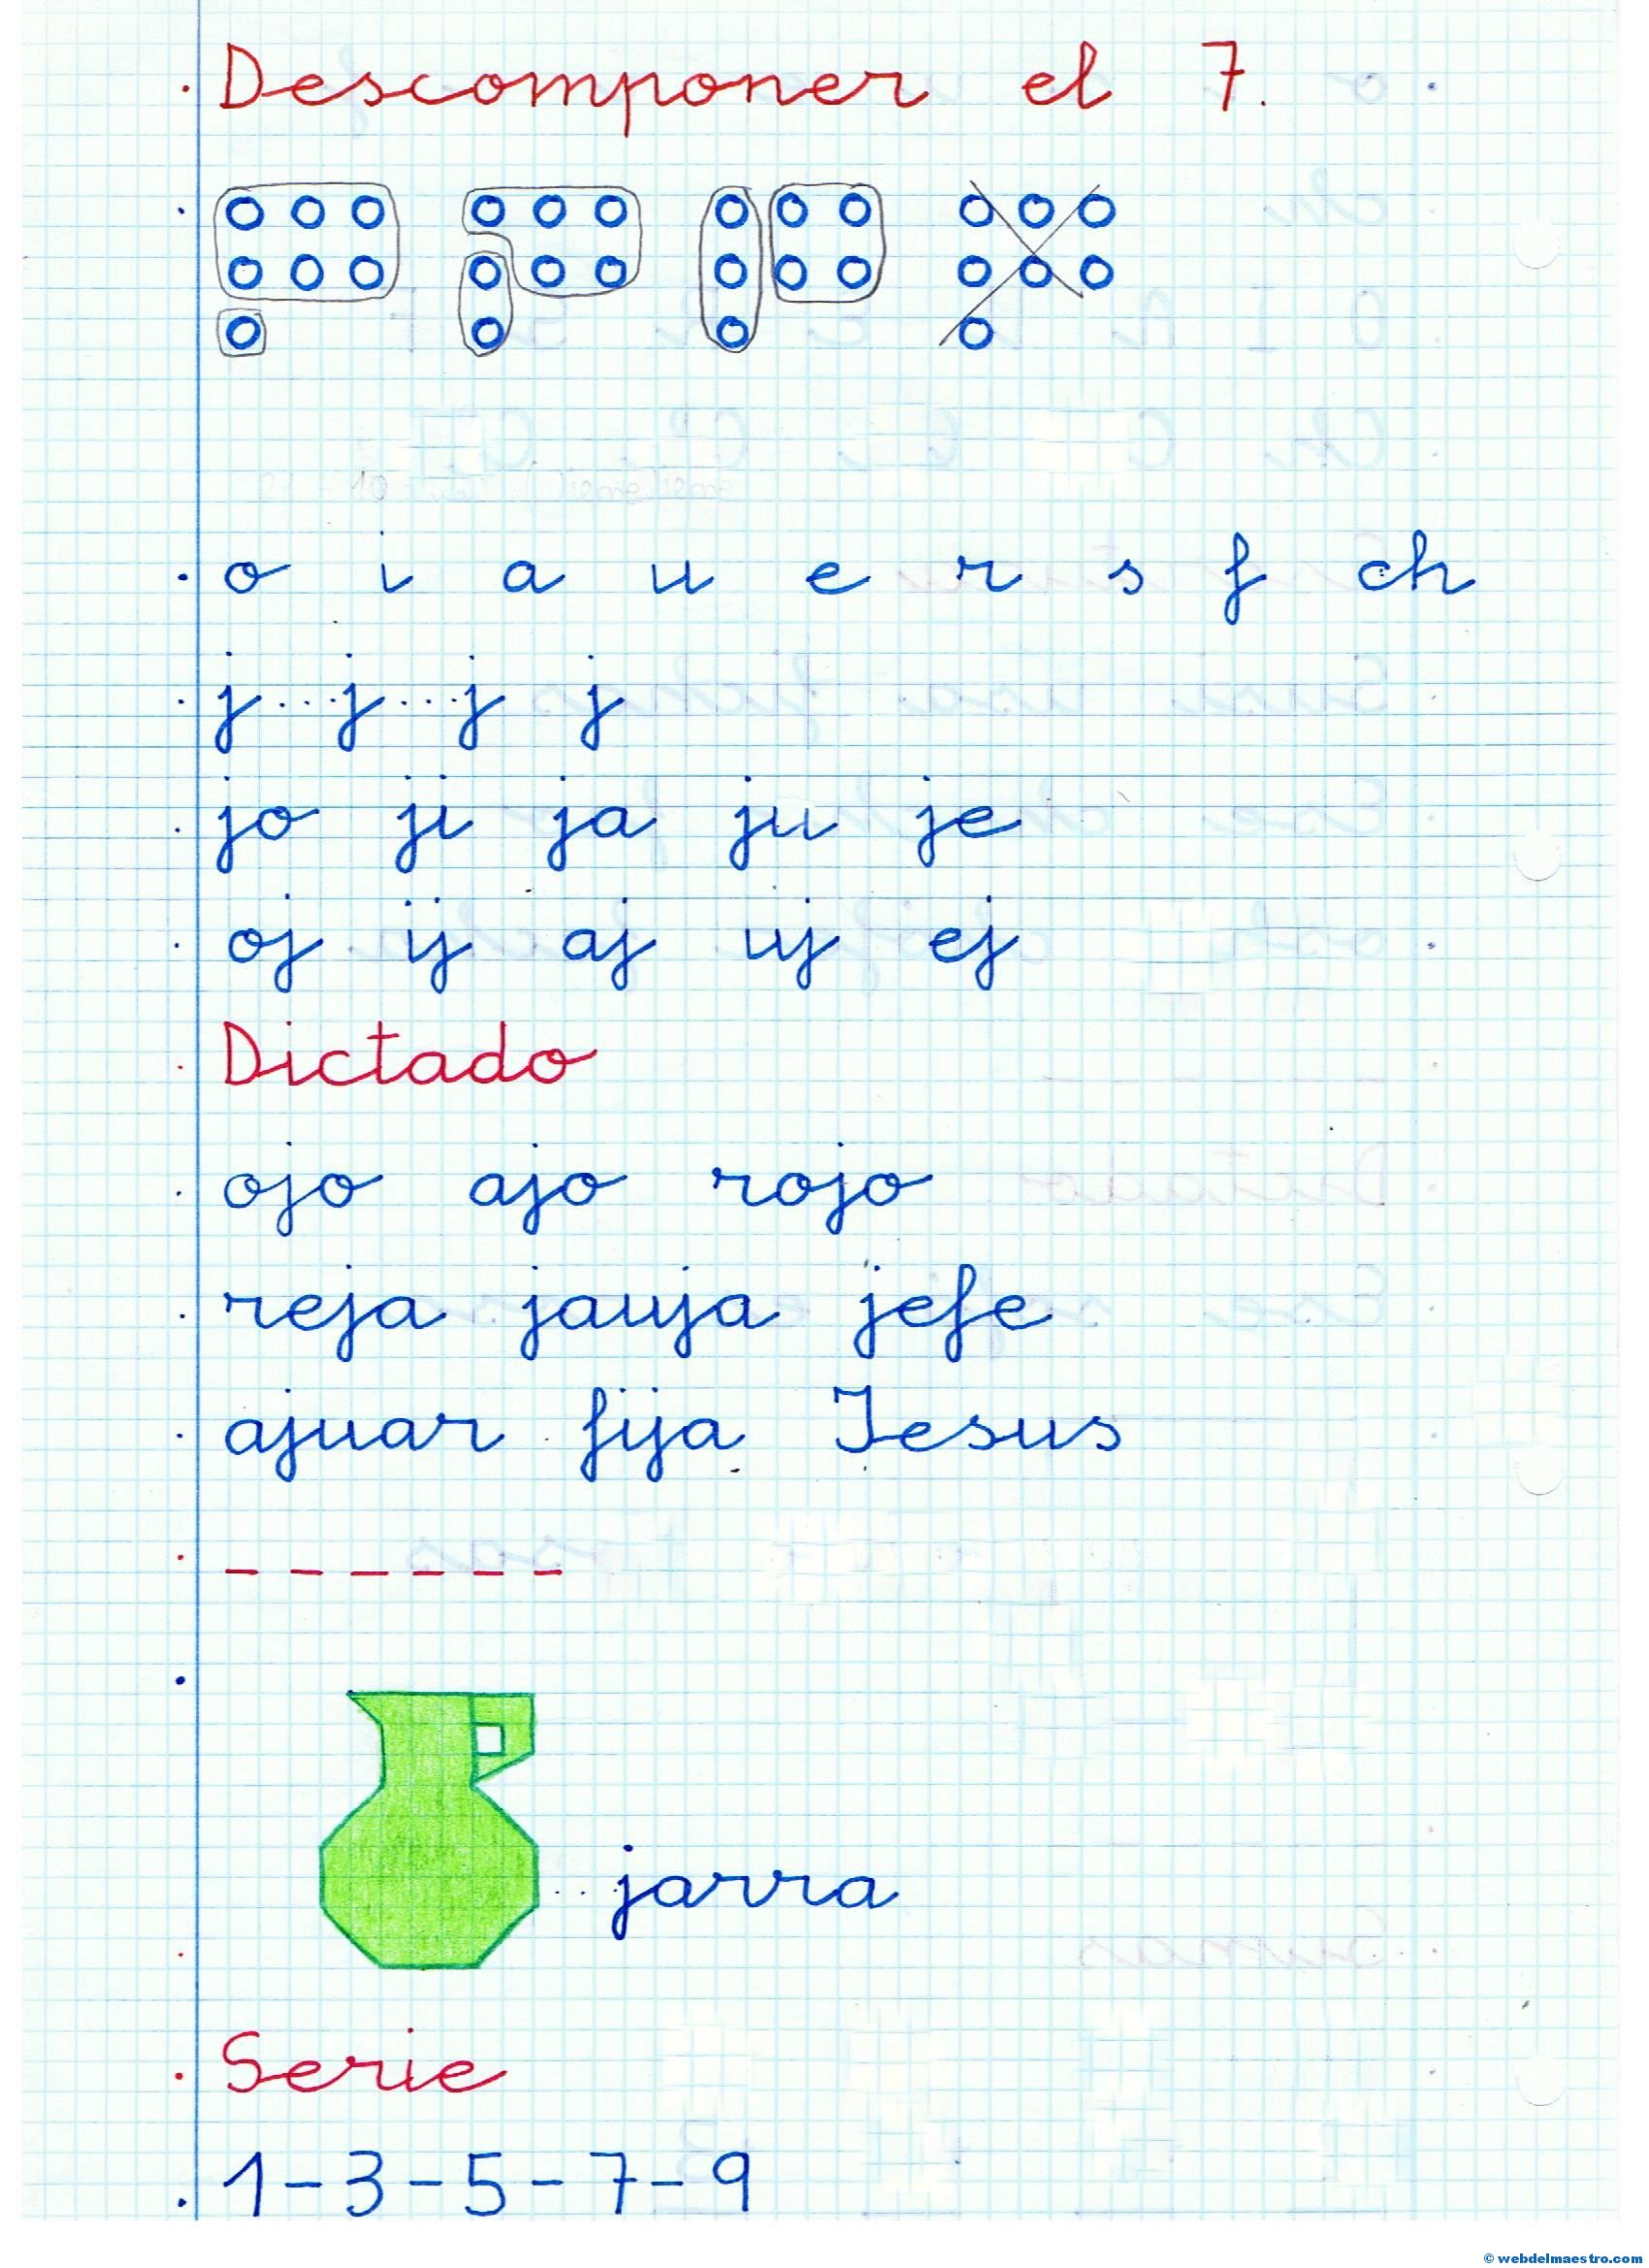 Descomponer el 7.
o i a u e r s f ch
j...j...j j
jo ji ja ju je
oj ij aj uj ej
Dictado
ojo ajo rojo
reja jauja jefe
ajuar fija Jesus
_ _ _ _ _ _
jarra
Serie
1-3-5-7-9
© webdelmaestro.com